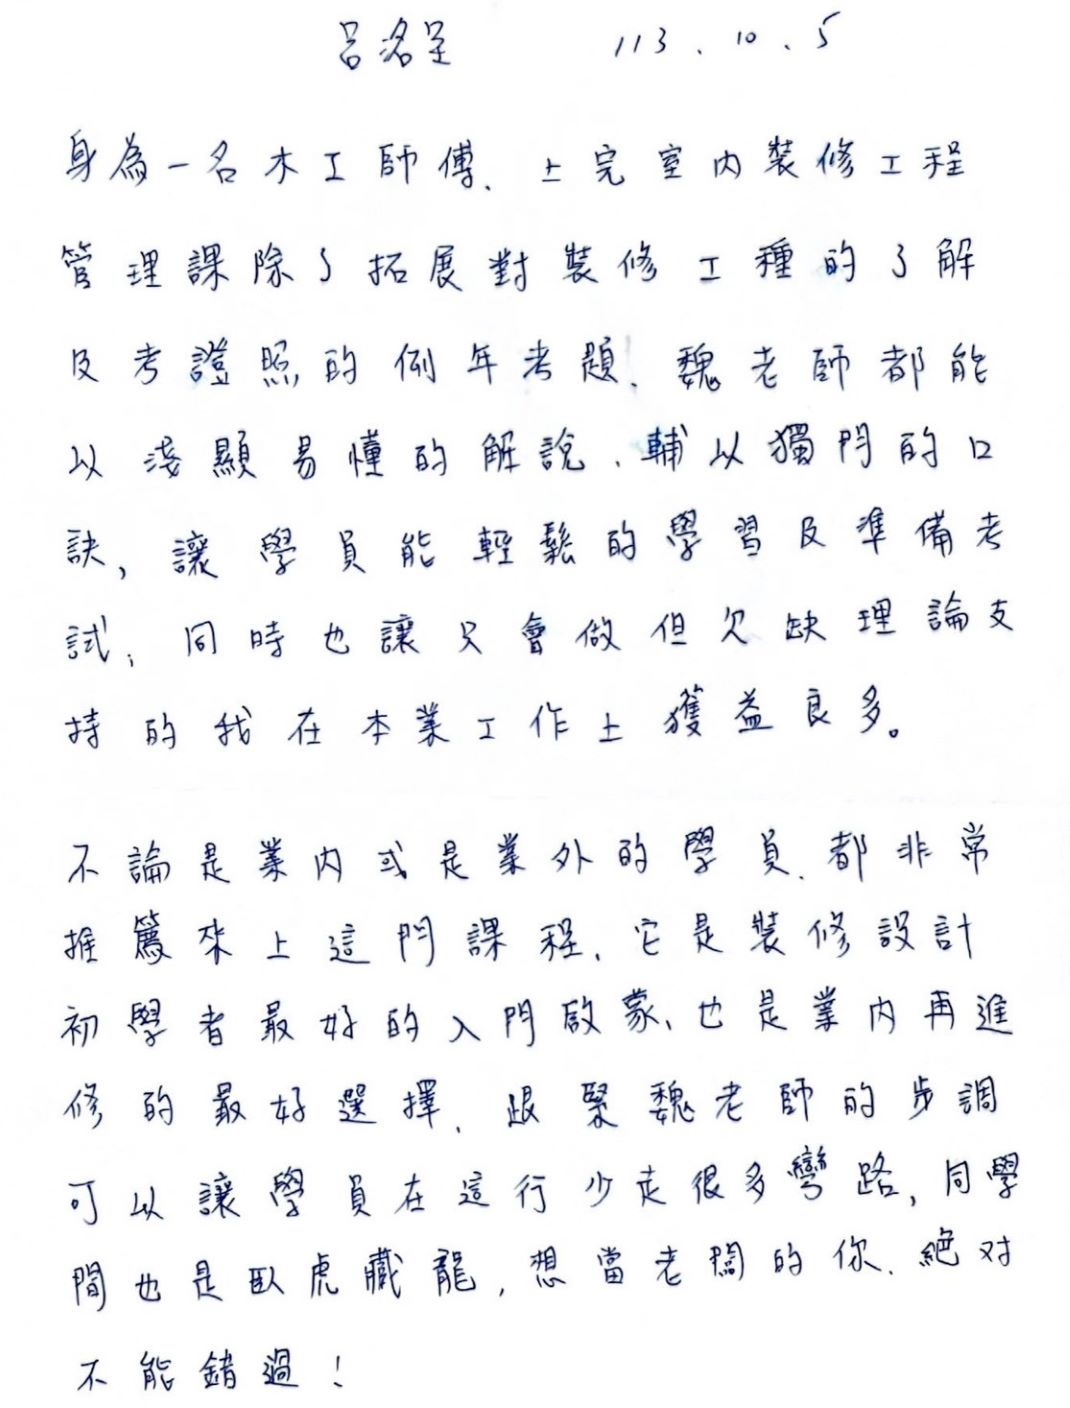 呂洺呈 113.10.5
身為一名木工師傅、上完室內裝修工程
管理課除了拓展對裝修工種的了解
及考證照的例年考題、魏老師都能
以淺顯易懂的解說、輔以獨門的口
訣,讓學員能輕鬆的學習及準備考
試,同時也讓只會做但欠缺理論支
持的我在本業工作上獲益良多。
不論是業內或是業外的學員、都非常
推薦來上這門課程、它是裝修設計
初學者最好的入門啟蒙、也是業內再進
修的最好選擇、跟緊魏老師的步調
可以讓學員在這行少走很多彎路,同學
間也是臥虎藏龍,想當老闆的你、絕对
不能錯過!